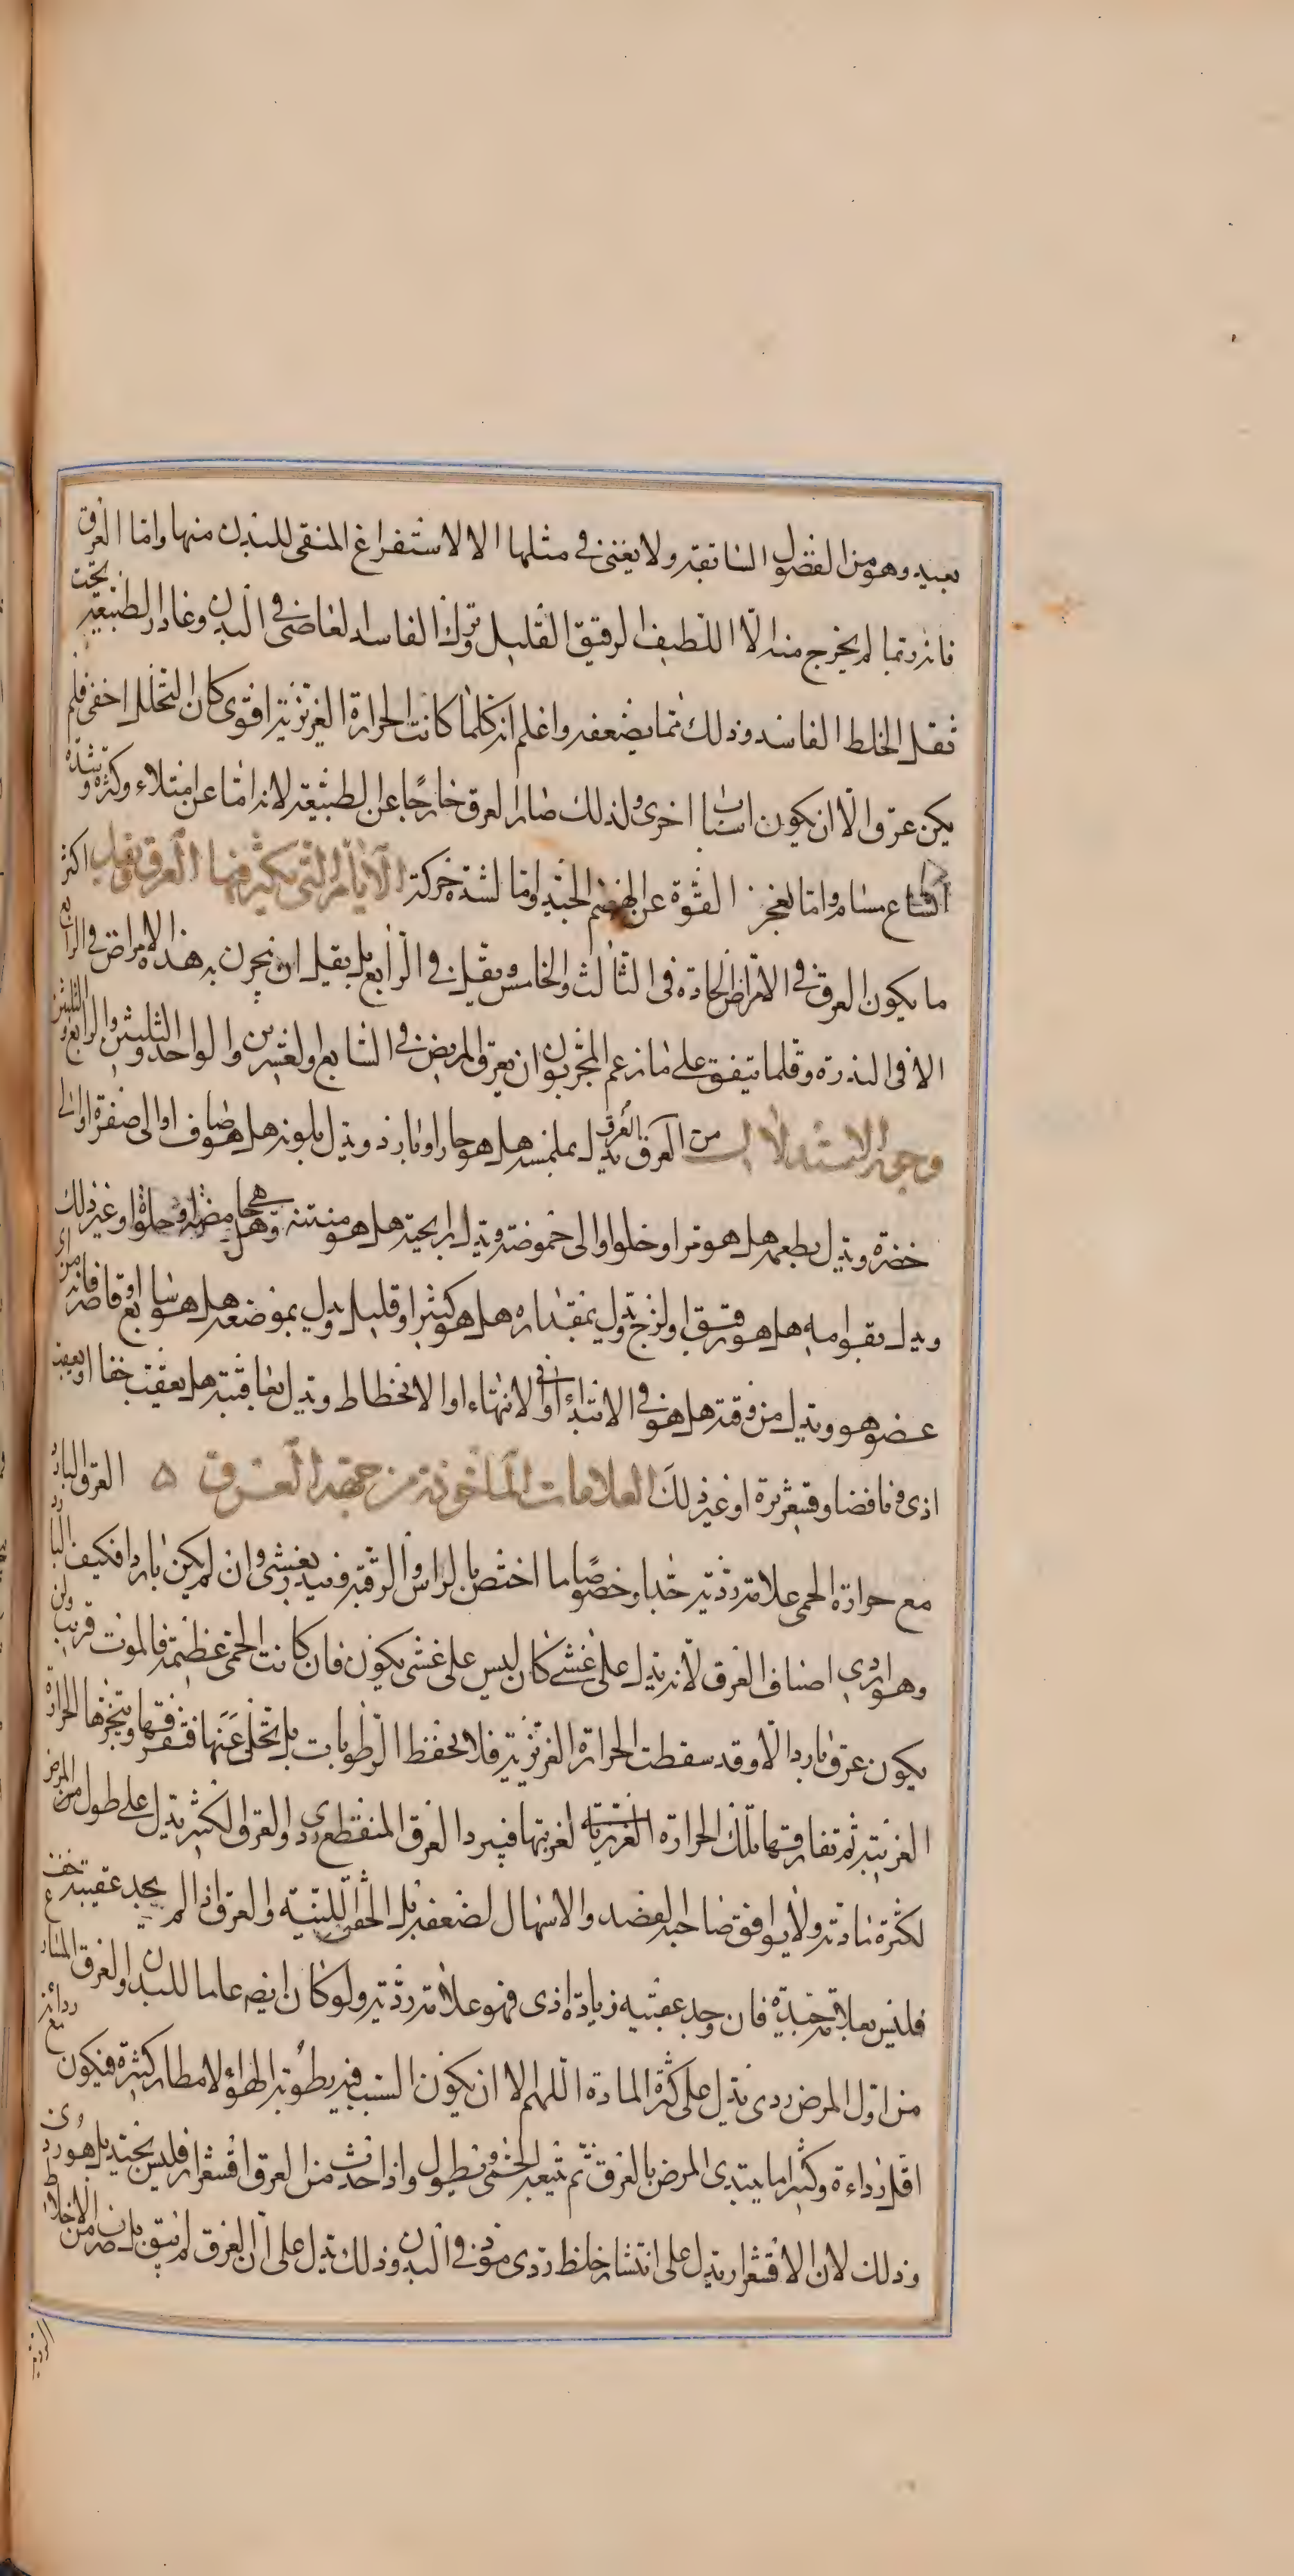 بعيد وهو من الفضول السابقة ولا يغنى فى مثلها الا الاستفراغ المنقى للبدن منها واما العرق
فانه ربما لم يخرج منه الا اللطيف الرقيق القليل وترك الفاسد العاصى فى البدن وغادر الطبيعة تحت
ثقل الخلط الفاسد وذلك مما يضعفه واعلم انه كلما كانت الحرارة الغريزية اقوى كان التحلل اخفى فلم
يكن عرق الا ان يكون اسباب اخرى ولذلك صار العرق خارجا عن الطبيعة لانه اما عن امتلاء وكثرة وشدة
اتساع مسام واما لعجز القوة عن الهضم الجيد واما لشدة حركة الايام التى يكثر فيها العرق ويقل اكثر
ما يكون العرق فى الامراض الحادة فى الثالث والخامس ويقل فى الرابع بل يقل ان يبحرن به هذه الامراض فى الرابع
الا فى الندرة وقلما يتفق على ما زعم المجربون ان يعرق المريض فى السابع والعشرين والواحد والثلثين والرابع والثلثين
وجوه الاستدلال من العرق العرق يدل بملمسه هل هو حار او بارد ويدل بلونه هل هو صاف او الى صفرة او الى
خضرة ويدل بطعمه هل هو مر او حلو او الى حموضة ويدل برايحته هل هو منتنة وهل هى حامضة او حلوة او غير ذلك
ويدل بقوامه هل هو رقيق او لزج ويدل بمقداره هل هو كثير او قليل ويدل بموضعه هل هو سابع او قاصر فانه من اى
عضو هو ويدل من وقته هل هو فى الابتداء او فى الانتهاء او الانحطاط ويدل بعاقبته هل يعقب خفا او يعقب
اذى ونافضا وقشعريرة او غير ذلك العلامات الماخوذة من جهة العرق ه العرق البارد
مع حرارة الحمى علامة ردية جدا وخصوصا ما اختص بالراس والرقبة وينذر بغشى وان لم يكن باردا فكيف البارد
وهو اردى اصناف العرق لانه يدل على غشى كان ليس على غشى يكون فان كانت الحمى عظيمة فالموت قريب ولن
يكون عرق باردا الا وقد سقطت الحرارة الغريزية فلا يحفظ الرطوبات بل يتخلى عنها فتفرقها وتبخرها الحرارة
الغريبة ثم تفارقها تلك الحرارة الغريبة لغربتها فيبرد العرق المنقطع ردى والعرق الكثير يدل على طول من المرض
لكثرة مادته ولا يوافق صاحبه الفصد والاسهال لضعفه بل الحقن اللينة والعرق اذا لم يجد عقيبه خف
فليس بعلامة جيدة فان وجد عقيبه زيادة اذى فهو علامة ردية ولو كان ايضا عاما للبدن والعرق المسارع
من اول المرض ردى يدل على كثرة المادة اللهم الا ان يكون السبب فيه رطوبة الهواء لامطار كثيرة فيكون ردائته مع
اقل رداءة وكثيرا ما يبتدى المرض بالعرق ثم يتبعه الحمى ويطول واذا حدث من العرق اقشعرار فليس بجيد بل هو ردى
وذلك لان الاقشعرار يدل على انتشار خلط ردى موذ فى البدن وذلك يدل على ان العرق لم ينق بل صرف من الاخلاط
الردية